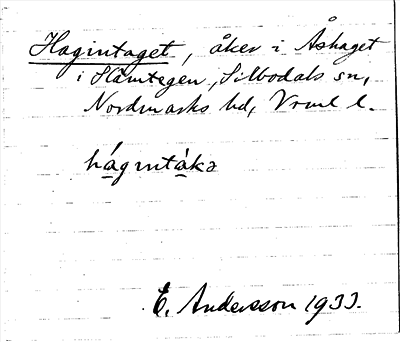 Hagintaget, åker i Åshaget
i Hämtegen, Silbodals sn,
Nordmarks hd, Vrml l.
hágintákə
E. Andersson 1933.